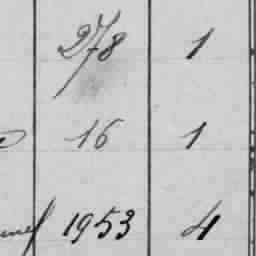 278 1
16 1
1953 4